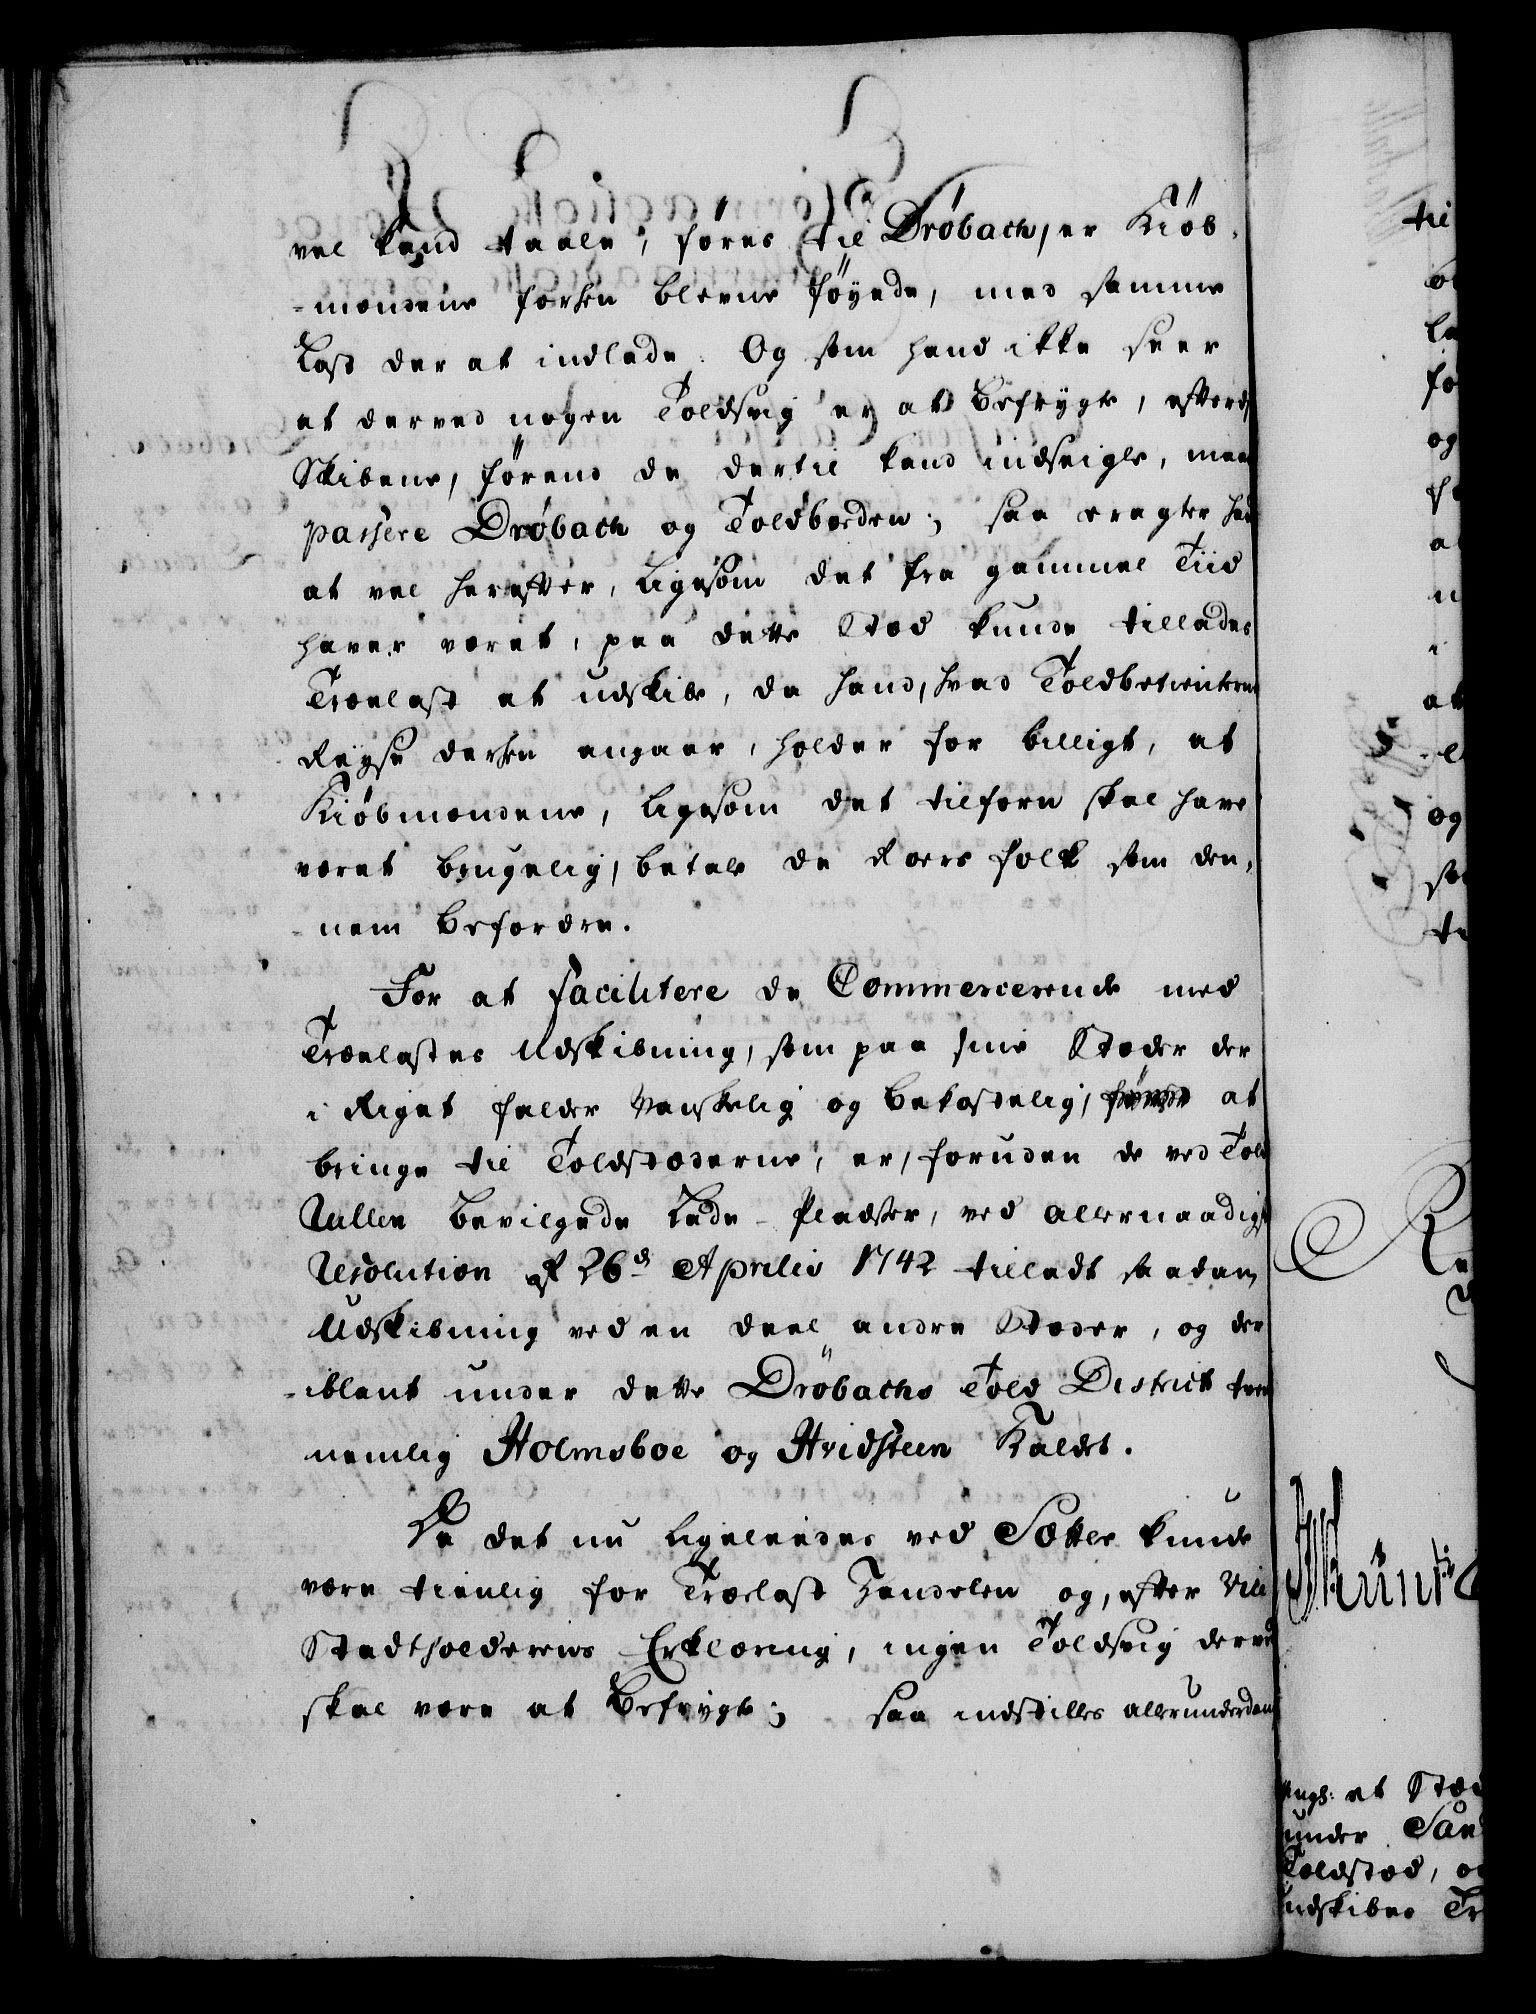 vel kand taale, føres til Drøbach, er Kiøb-
-mændene forhen blevne føyede, med samme
Last der at indlade. Og som hand ikke seer
at derved nogen Toldsvig er at befrygte, efterdi
Skibene, førend de dertil kand indseigle, maae
passere Drøbach og Toldboeden; saa eragter hand
at vel herefter, ligesom det fra gammel Tiid
haver været, paa dette Stæd kunde tillades
Trælast at udskibe, da hand, hvad Toldbetienternes
Reyse derhen angaar, holder for billigt, at
Kiøbmændene, ligesom det tilforn skal have
været brugelig, betale de Roers folk som den-
-nem befordre.
For at facilitere de Commercerende med
Trælastes Udskibning, som paa sine Stæder der
i Riget falder vanskelig og bekostelig, at
bringe til Toldstæderne, er, foruden de ved Told
Rullen bevilgede Lade-Pladser, ved allernaadigst
Resolution af 26de Aprilis 1742 tilladt saadan
Udskibning ved en deel andre Stæder, og der
-iblant under dette Drøbachs Told District tvende
nemlig Holmsboe og Hvidsteen kaldet.
Da det nu ligeleedes ved Sætte kunde
være tienlig for Trælast Handelen og, efter Vice
Stadtholderens Erklæring, ingen Toldsvig derved
skal være at befrygte; saa indstilles allerunderdan
til
og
Angs: at Stæd
under San
Toldstæd, o
udskibes Tr